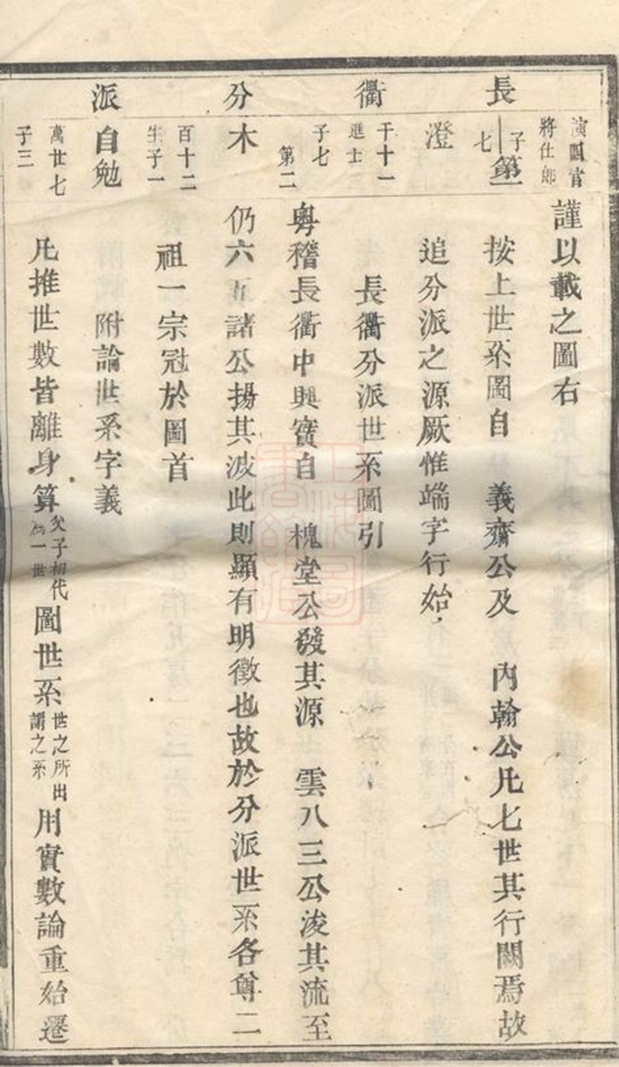 長衢分派
演國官
將仕郎
子七
第一
澄
千十一
進士
子七
第二
木
百十二
生子一
自勉
萬世七
子三
謹以載之圖右
按上世系圖自　義齋公及　內翰公凡七世其行闕焉故
追分派之源厥惟端字行始
長衢分派世系圖引
粵稽長衢中興實自　槐堂公發其源　雲八三公浚其流至
仍六五諸公揚其波此則顯有明徵也故於分派世系各尊二
祖一宗冠於圖首
附論世系字義
凡推世數皆離身算父子初代為一世圖世系世之所出謂之系用實數論重始遷